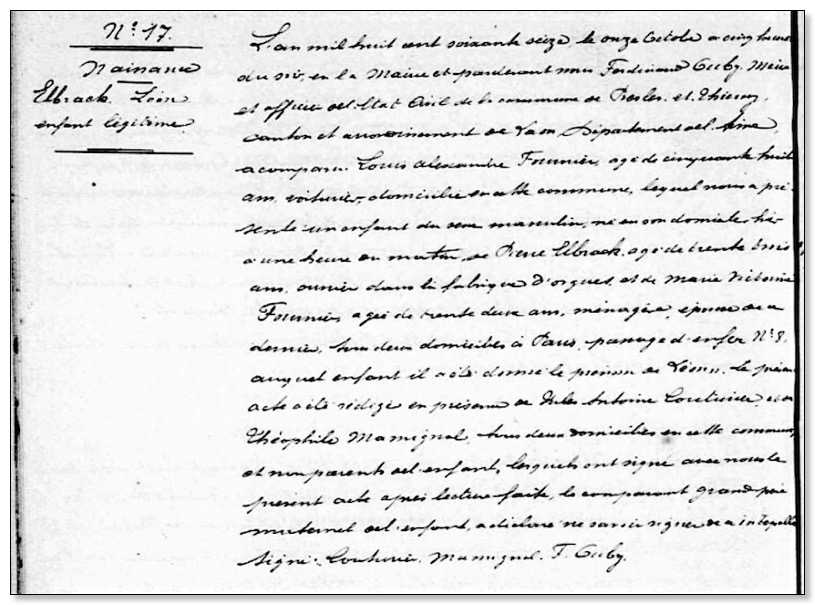 N° 17.
Naissance
Elbrack Léon
enfant légitime
L'an mil huit cent soixante seize, le onze Octobre a cinq heures
du soir, en la Mairie et pardevant nous Ferdinand Cuby, Maire
et officier de l'Etat Civil de la commune de Presles et Thierny,
canton et arrondissement de Laon, Département de l'Aisne,
a comparu Louis Alexandre Fournier, agé de cinquante huit
ans, voiturier, domicilié en cette commune, lequel nous a pré-
senté un enfant du sexe masculin, né en son domicile, hier
à une heure du matin, de Pierre Elbrack, agé de trente trois
ans, ouvrier dans la fabrique d'orgues, et de Marie Victoire
Fournier, agée de trente deux ans, ménagère, épouse de ce
dernier, tous deux domiciliés à Paris, passage d'enfer N° 8,
auquel enfant il a été donné le prénom de Léon. Le présent
acte a été rédigé en présence de Jules Antoine Couturier, et de
Théophile Mamignol, tous deux domiciliés en cette commune,
et non parents de l'enfant, lesquels ont signé avec nous le
présent acte après lecture faite, le comparant grand père
maternel de l'enfant, a déclaré ne savoir signer de ce interpellé
Signé: Couturier. Mamignol. F. Cuby.